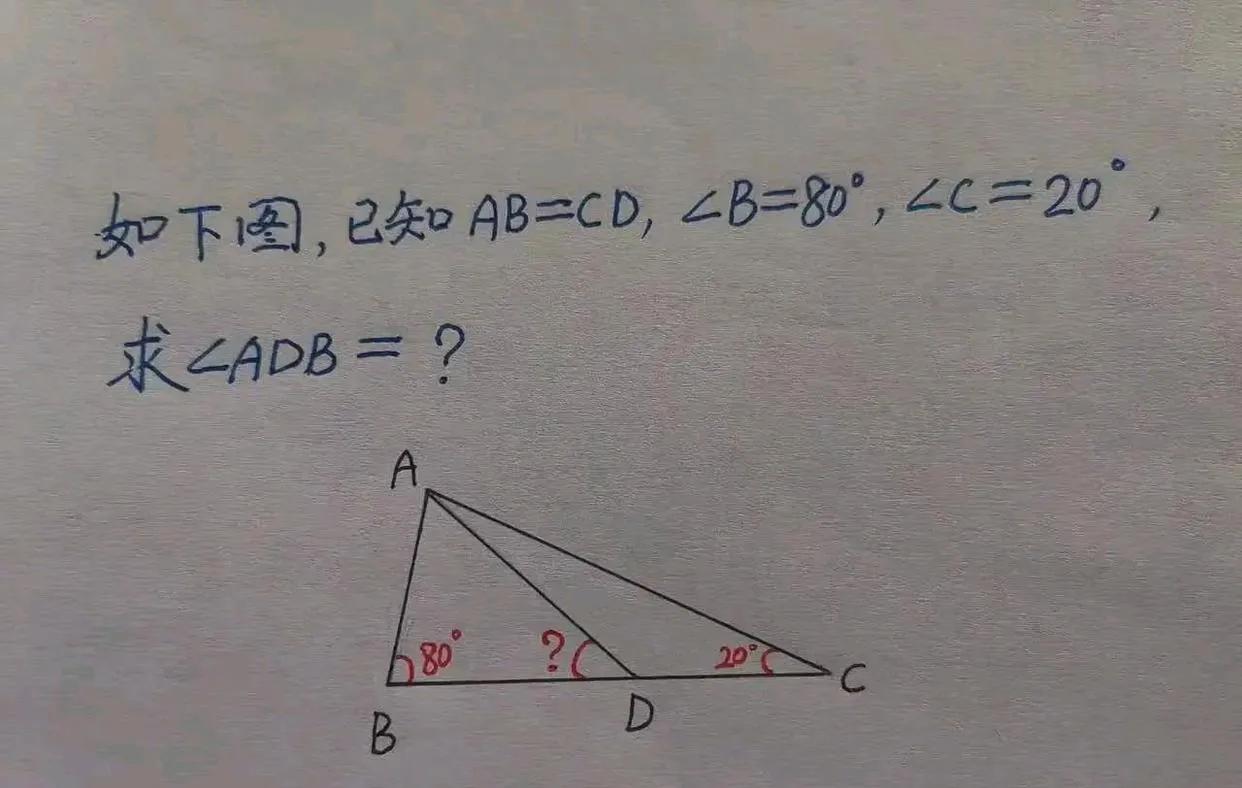 如下图,已知AB=CD,∠B=80°,∠C=20°,
求∠ADB=?
A
80°
?
20°
C
B
D